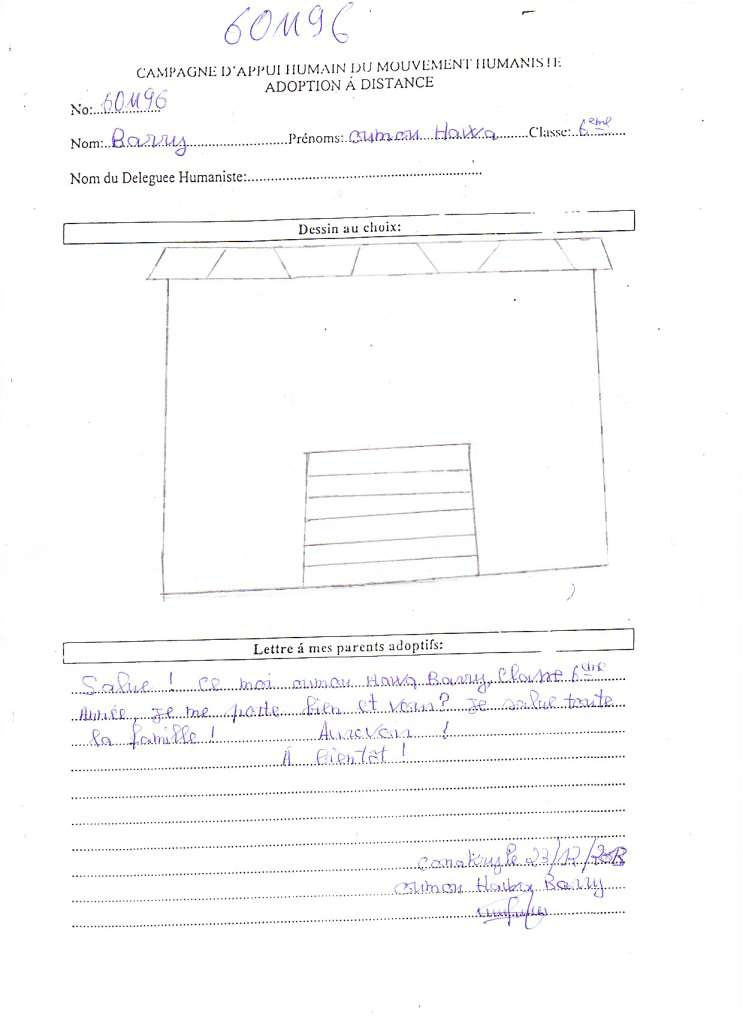 601196
CAMPAGNE D'APPUI HUMAIN DU MOUVEMENT HUMANISTE
ADOPTION Á DISTANCE
No:..601196
Nom: Barry Prénoms: oumou Hawa Classe: 6ème
Nom du Deleguee Humaniste:
Dessin au choix:
Lettre á mes parents adoptifs:
Salue ! ce moi oumou Hawa Barry, Classe 6ème
Année, je me porte bien et vous? Je salue toute
la famille ! Aurevoir !
Á bientôt !
Conakry le 23/12/
oumou Hawa Barry